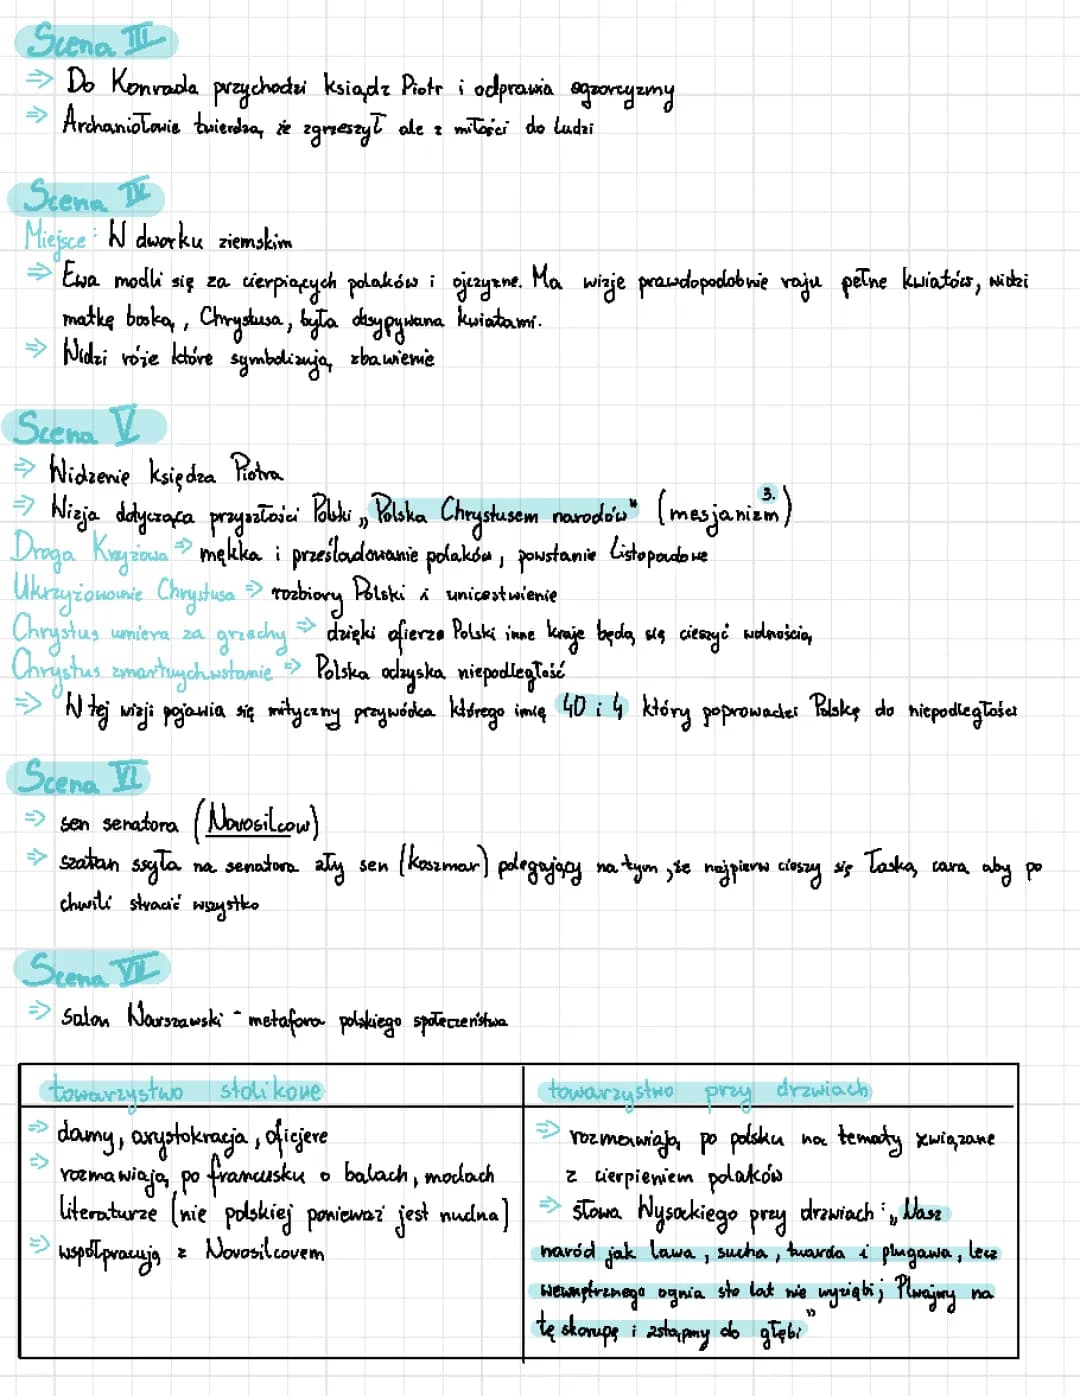 Scena III
⇒ Do Konrada przychodzi ksiądz Piotr i odprawia egzorcyzmy
⇒ Archaniołowie twierdzą, że zgrzeszył ale z miłości do ludzi
Scena IV
Miejsce: W dworku ziemskim
⇒ Ewa modli się za cierpiących polaków i ojczyznę. Ma wizje prawdopodobnie raju pełne kwiatów, widzi
matkę boską, Chrystusa, była obsypywana kwiatami.
⇒ Widzi róże które symbolizują zbawienie
Scena V
⇒ Widzenie księdza Piotra
⇒ Wizja dotycząca przyszłości Polski „Polska Chrystusem narodów" (mesjanizm) 3.
Droga Krzyżowa ⇒ męka i prześladowanie polaków, powstanie listopadowe
Ukrzyżowanie Chrystusa ⇒ rozbiory Polski i unicestwienie
Chrystus umiera za grzechy ⇒ dzięki ofierze Polski inne kraje będą się cieszyć wolnością
Chrystus zmartwychwstanie ⇒ Polska odzyska niepodległość
⇒ W tej wizji pojawia się mityczny przywódca którego imię 40 i 4 który poprowadzi Polskę do niepodległości
Scena VI
⇒ sen senatora (Novosilcow)
⇒ szatan zsyła na senatora zły sen (koszmar) polegający na tym, że najpierw cieszy się łaską cara aby po
chwili stracić wszystko
Scena VII
⇒ Salon Warszawski - metafora polskiego społeczeństwa
towarzystwo stolikowe
⇒ damy, arystokracja, oficjere
⇒ rozmawiają po francusku o balach, modach
literaturze (nie polskiej ponieważ jest nudna)
⇒ współpracują z Novosilcovem
towarzystwo przy drzwiach
⇒ rozmawiają po polsku na tematy związane
z cierpieniem polaków
⇒ słowa Wysockiego przy drzwiach: „Nasz
naród jak lawa, sucha, twarda i plugawa, lecz
wewnętrznego ognia sto lat nie wyziębi; Plwajmy na
tę skorupę i zstąpmy do głębi"